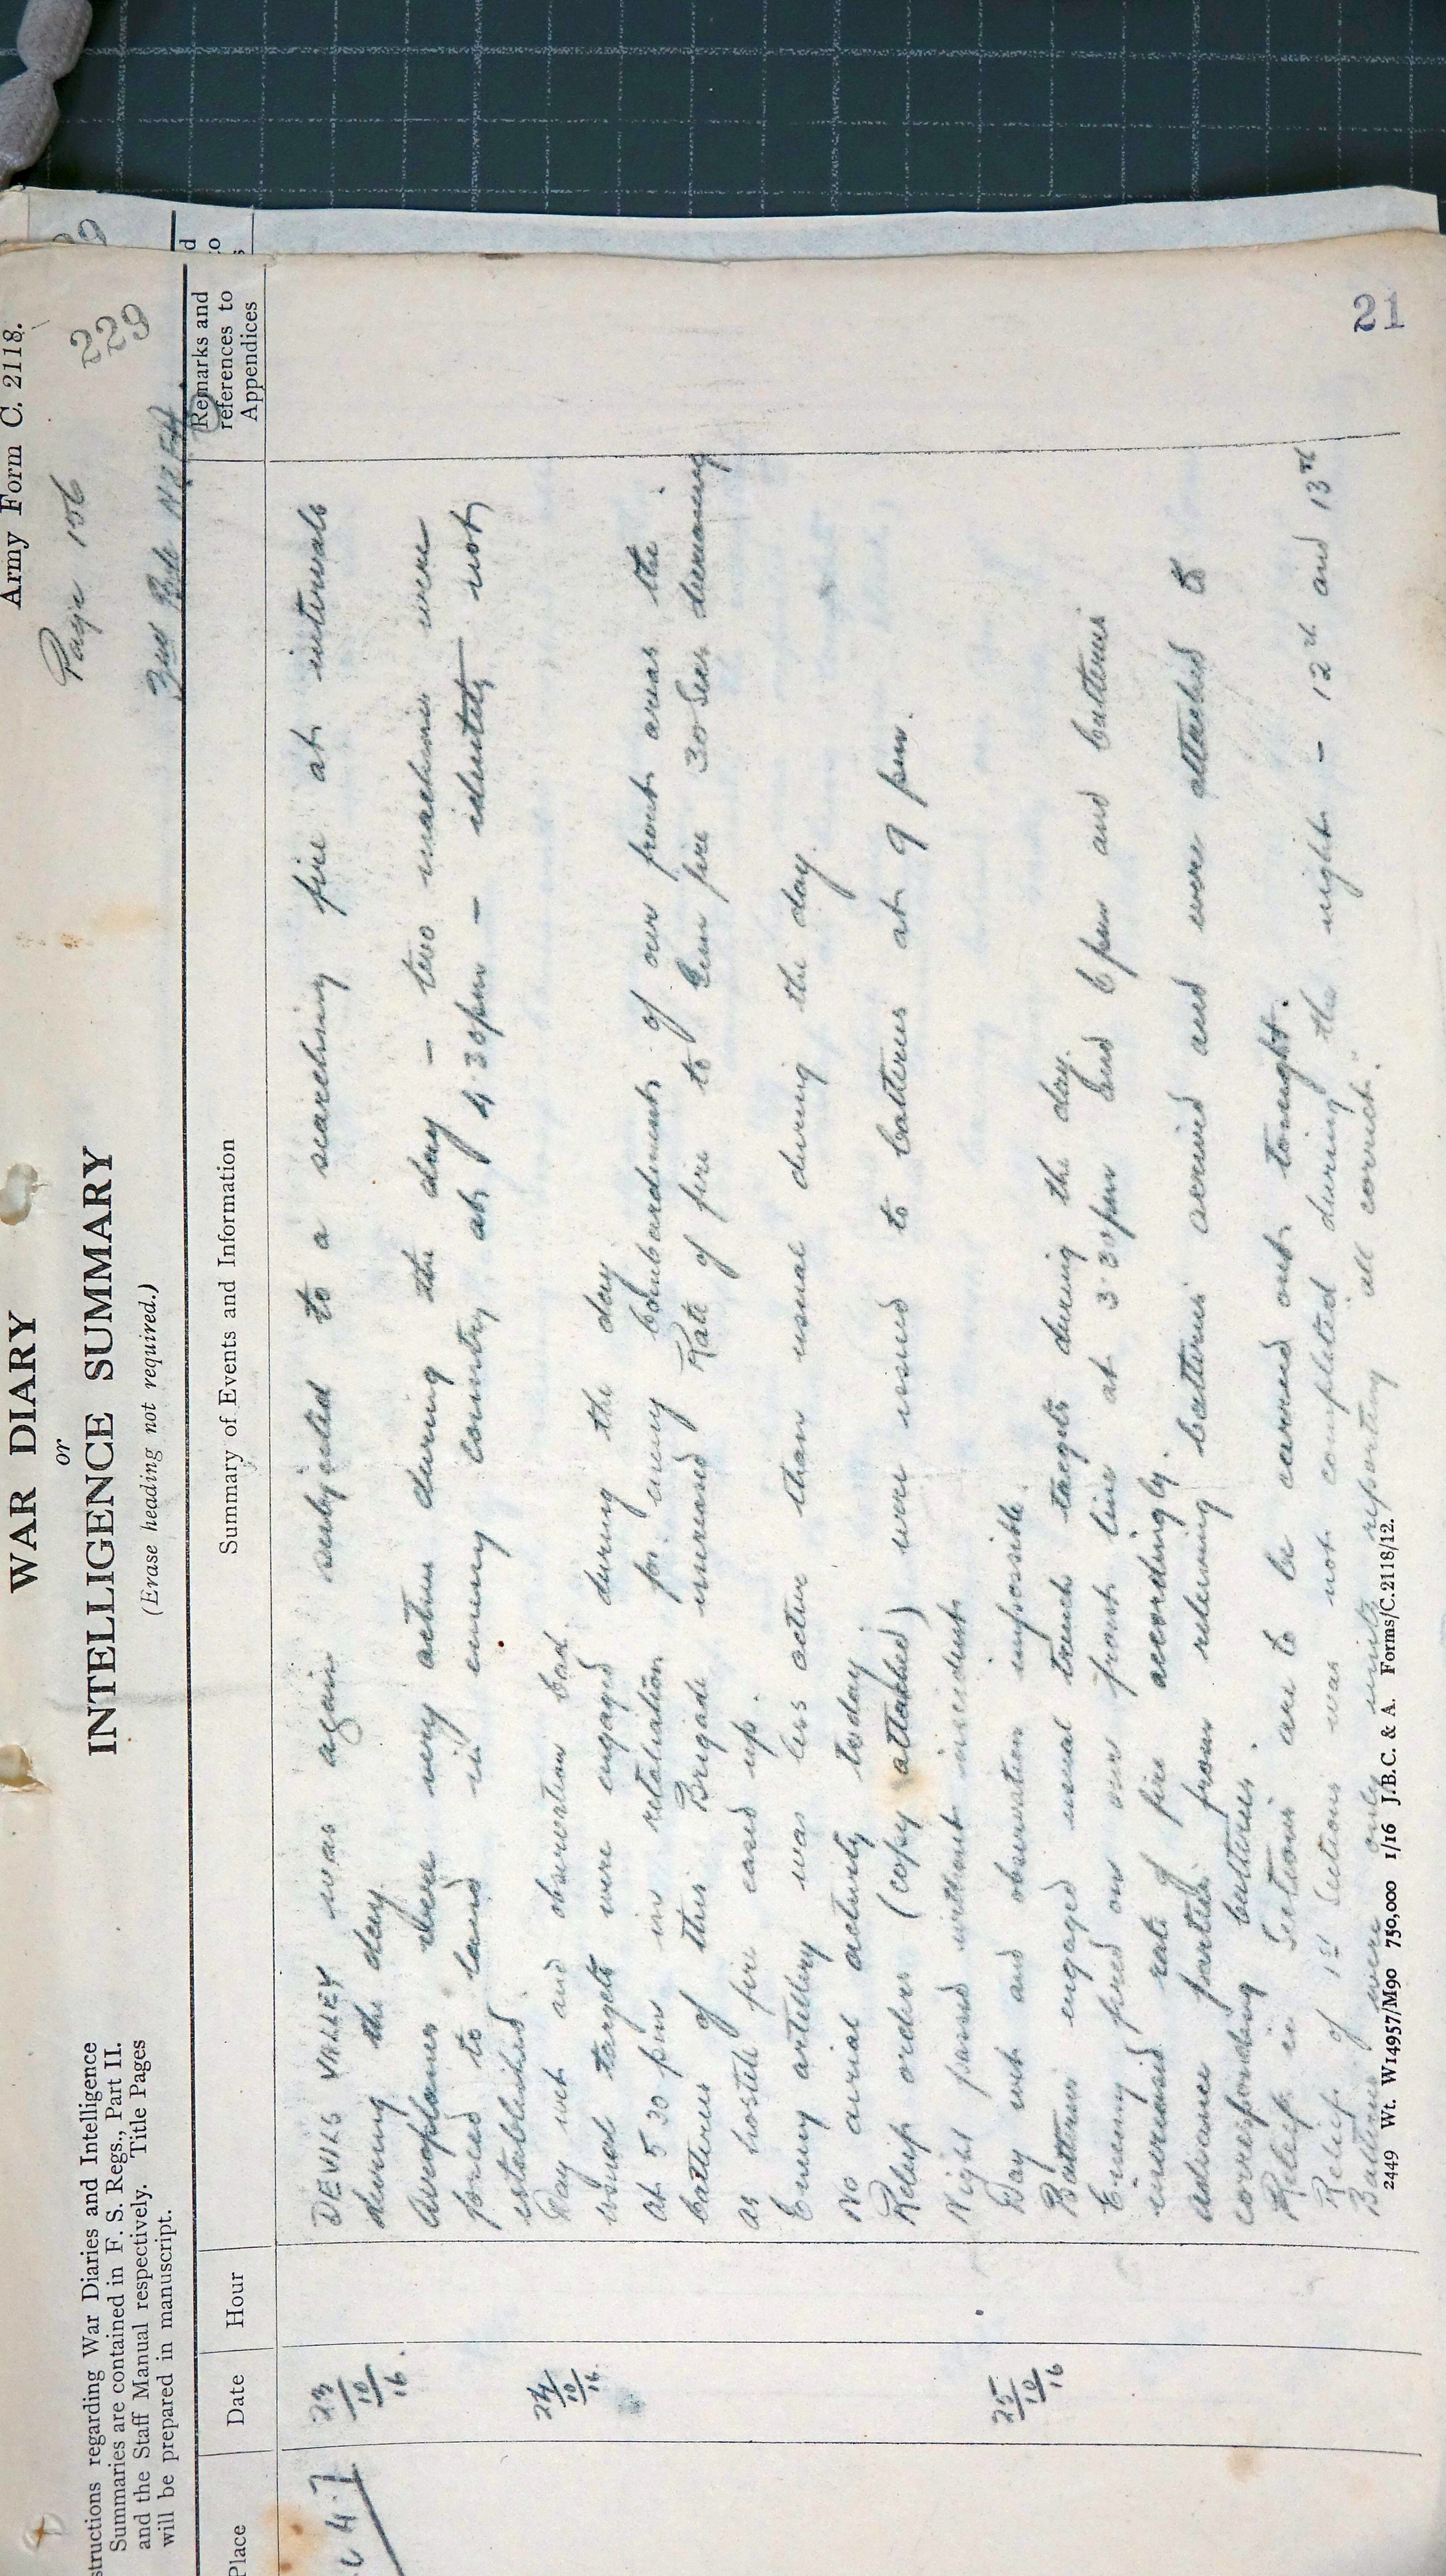 Army Form C. 2118.
WAR DIARY
or
INTELLIGENCE SUMMARY
(Erase heading not required.)
Page 156
229
3rd Bde NZFA
structions regarding War Diaries and Intelligence
Summaries are contained in F. S. Regs., Part II.
and the Staff Manual respectively. Title Pages
will be prepared in manuscript.
Place
Date
Hour
Summary of Events and Information
Remarks and
references to
Appendices
23/10/16. DEVILS VALLEY was again subjected to a searching fire at intervals
during the day.
Aeroplanes were very active during the day – two machines were
forced to land in enemy country at 4.30pm – identity not
established
24/10/16 Day wet and observation bad.
usual targets were engaged during the day
at 5.30 pm in retaliation for enemy bombardment of our front areas the
batteries of this Brigade increased Rate of fire to Gun fire 30 Secs decreasing
as hostile fire eased up.
Enemy artillery was less active than usual during the day.
No aerial activity today
Relief orders (copy attached) were issued to batteries at 9 pm.
Night passed without incident
25/10/16 Day wet and observation impossible.
Batteries engaged usual trench targets during the day.
Enemy fired on our front line at 3.30pm and 6pm and batteries
increased rate of fire accordingly.
advance parties from relieving batteries arrived and were attached to
corresponding batteries.
Relief in Sections are to be carried out tonight.
Relief of 1st Sections was not completed during the night – 12th and 13th
Batteries were only units reporting "all correct."
2449 Wt. W14957/M90 750,000 1/16 J.B.C. & A. Forms/C.2118/12.
21